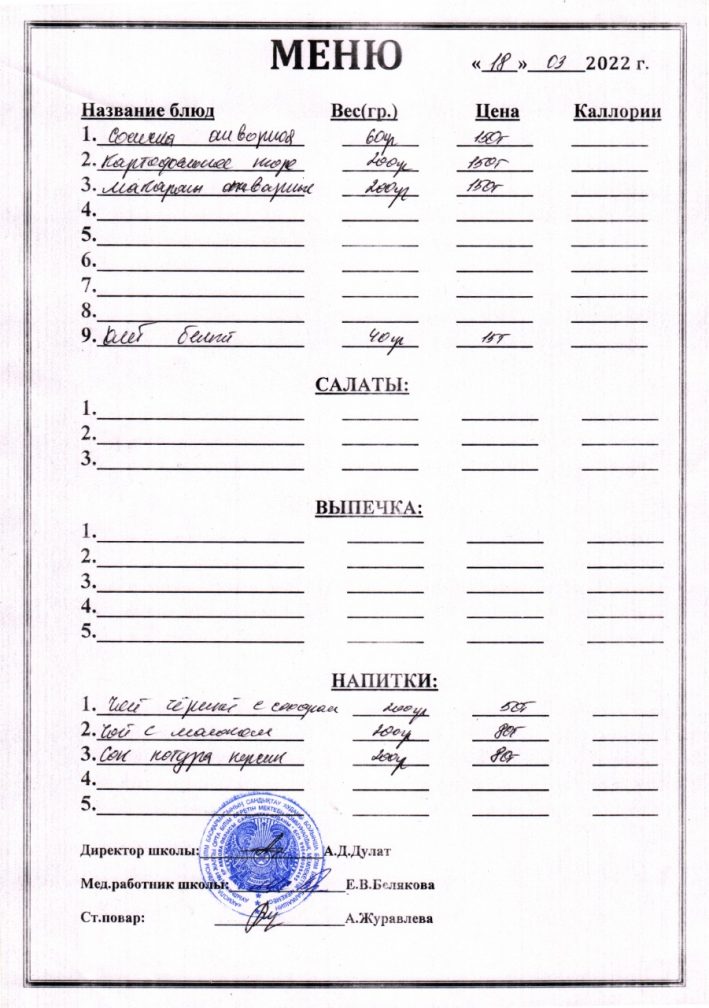 МЕНЮ «18» 03 2022 г.
Название блюд Вес(гр.) Цена Каллории
1. Сосиска отварная 60гр 150т
2. Картофельное пюре 200гр 150т
3. Макароны отварные 200гр 150т
4.
5.
6.
7.
8.
9. Хлеб белый 40гр 15т
САЛАТЫ:
1.
2.
3.
ВЫПЕЧКА:
1.
2.
3.
4.
5.
НАПИТКИ:
1. Чай чёрный с сахаром 200гр 50т
2. Чай с молоком 200гр 80т
3. Сок 200гр 80т
4.
5.
Директор школы: А.Д.Дулат
Мед.работник школы: Е.В.Белякова
Ст.повар: А.Журавлева